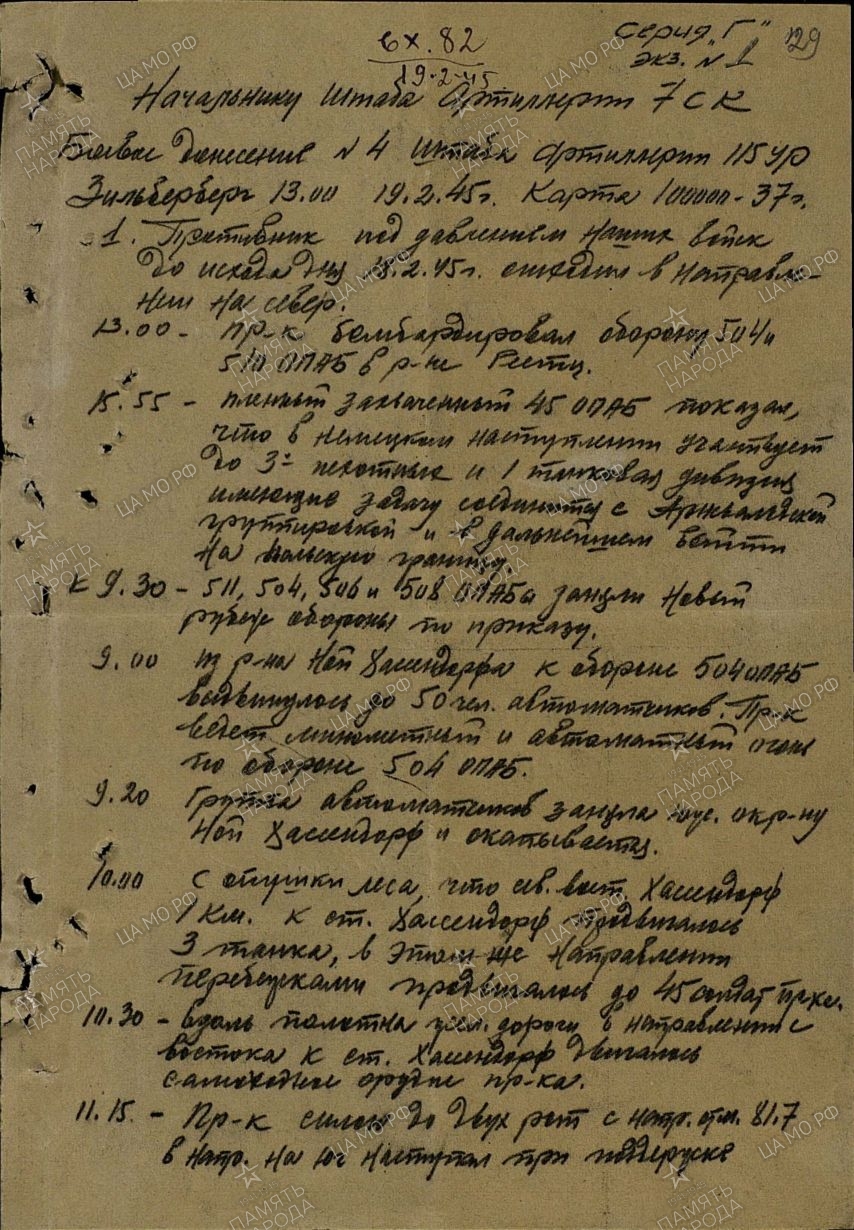 серия "Г"
экз. №1
129
вх. 82
19-2-45
Начальнику штаба Артиллерии 7 СК
Боевое донесение №4 Штаба Артиллерии 115 УР
Зильберберг 13.00 19.2.45г. Карта 100000-37г.
1. Противник под давлением наших войск
до исхода дня 18.2.45г. отходил в направле-
нии на север.
13.00 - пр-к бомбардировал оборону 504 и
510 ОПАБ в р-не Реетц.
15.55 - пленный захваченный 45 ОПАБ показал,
что в немецком наступлении участвует
до 3х пехотных и 1 танковая дивизия
имеющие задачу соединится с Арнсвальдской
группировкой и в дальнейшем выйти
на польскую границу.
К 9.30 - 511, 504, 506 и 508 ОПАБы заняли новый
рубеж обороны по приказу.
9.00 из р-на Ной Хассендорфа к обороне 504 ОПАБ
выдвинулось до 50 чел. автоматчиков. Пр-к
ведет минометный и автоматный огонь
по обороне 504 ОПАБ.
9.20 Группа автоматчиков заняла юж. окр-ну
Ной Хассендорф и окапывается.
10.00 с опушки леса, что сев. вост. Хассендорф
1 км. к ст. Хассендорф продвигалось
3 танка, в этом же направлении
перебежками продвигалось до 45 солдат пр-ка.
10.30 - вдоль полотна жел. дороги в направлении с
востока к ст. Хассендорф двигалось
самоходное орудие пр-ка.
11.15 - Пр-к силою до двух рот с напр. отм. 81.7
в напр. на юг наступал при поддержке